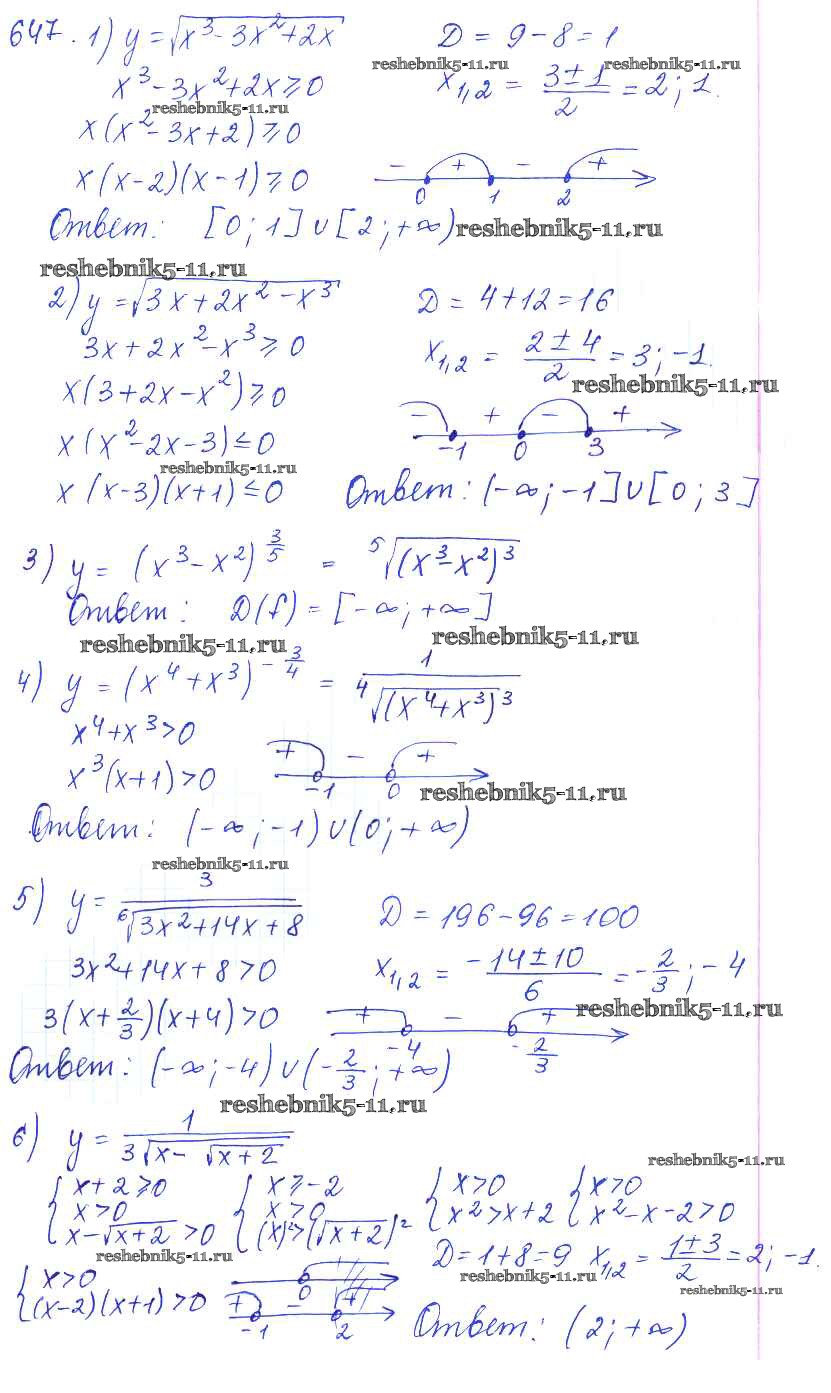 647. 1) y = √(x³ - 3x² + 2x)    D = 9 - 8 = 1
reshebnik5-11.ru    reshebnik5-11.ru
x³ - 3x² + 2x ⩾ 0    x₁,₂ = (3 ± 1)/2 = 2; 1.
reshebnik5-11.ru
x(x² - 3x + 2) ⩾ 0
x(x - 2)(x - 1) ⩾ 0    - + - +
0 1 2
Ответ: [0; 1] ∪ [2; +∞) reshebnik5-11.ru
reshebnik5-11.ru
2) y = √(3x + 2x² - x³)    D = 4 + 12 = 16
3x + 2x² - x³ ⩾ 0    x₁,₂ = (2 ± 4)/2 = 3; -1.
reshebnik5-11.ru
x(3 + 2x - x²) ⩾ 0
x(x² - 2x - 3) ≤ 0    - + - +
-1 0 3
reshebnik5-11.ru
x(x - 3)(x + 1) ≤ 0    Ответ: (-∞; -1] ∪ [0; 3]
3) y = (x³ - x²)^(3/5) = ⁵√(x³ - x²)³
Ответ: D(f) = [-∞; +∞]
reshebnik5-11.ru    reshebnik5-11.ru
4) y = (x⁴ + x³)^(-3/4) = 1/⁴√(x⁴ + x³)³
x⁴ + x³ > 0
x³(x + 1) > 0    + - +
-1 0 reshebnik5-11.ru
Ответ: (-∞; -1) ∪ (0; +∞)
reshebnik5-11.ru
5) y = 3/⁶√(3x² + 14x + 8)    D = 196 - 96 = 100
3x² + 14x + 8 > 0    x₁,₂ = (-14 ± 10)/6 = -2/3; -4
reshebnik5-11.ru
3(x + 2/3)(x + 4) > 0    + - +
-4 -2/3
Ответ: (-∞; -4) ∪ (-2/3; +∞)
reshebnik5-11.ru
6) y = 1/(3√(x - √(x + 2)))
reshebnik5-11.ru
{ x + 2 ⩾ 0    { x ⩾ -2    { x > 0    { x > 0
x > 0    x > 0    x² > x + 2    x² - x - 2 > 0
x - √(x + 2) > 0    (x)² > (√(x + 2))²
reshebnik5-11.ru    D = 1 + 8 = 9    x₁,₂ = (1 ± 3)/2 = 2; -1.
reshebnik5-11.ru    reshebnik5-11.ru
{ x > 0    0
(x - 2)(x + 1) > 0    + - +
-1 2    Ответ: (2; +∞)